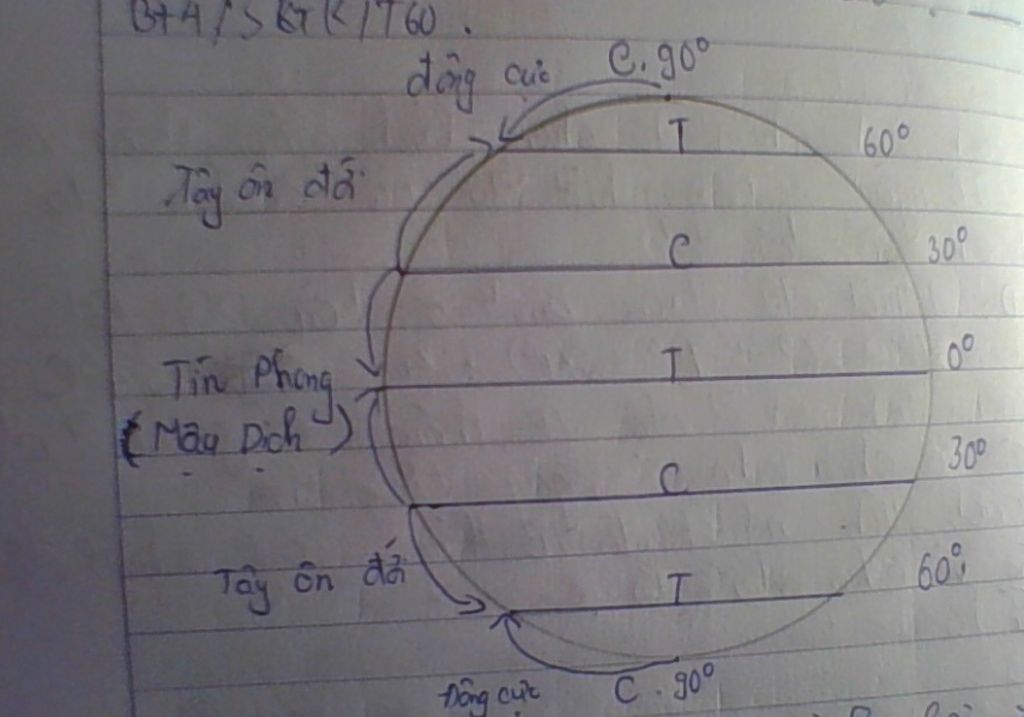 đông cực C. 90°
T 60°
Tây ôn đới
C 30°
T 0°
Tín Phong
(Mậu Dịch)
C 30°
Tây ôn đới
T 60°
Đông cực C. 90°